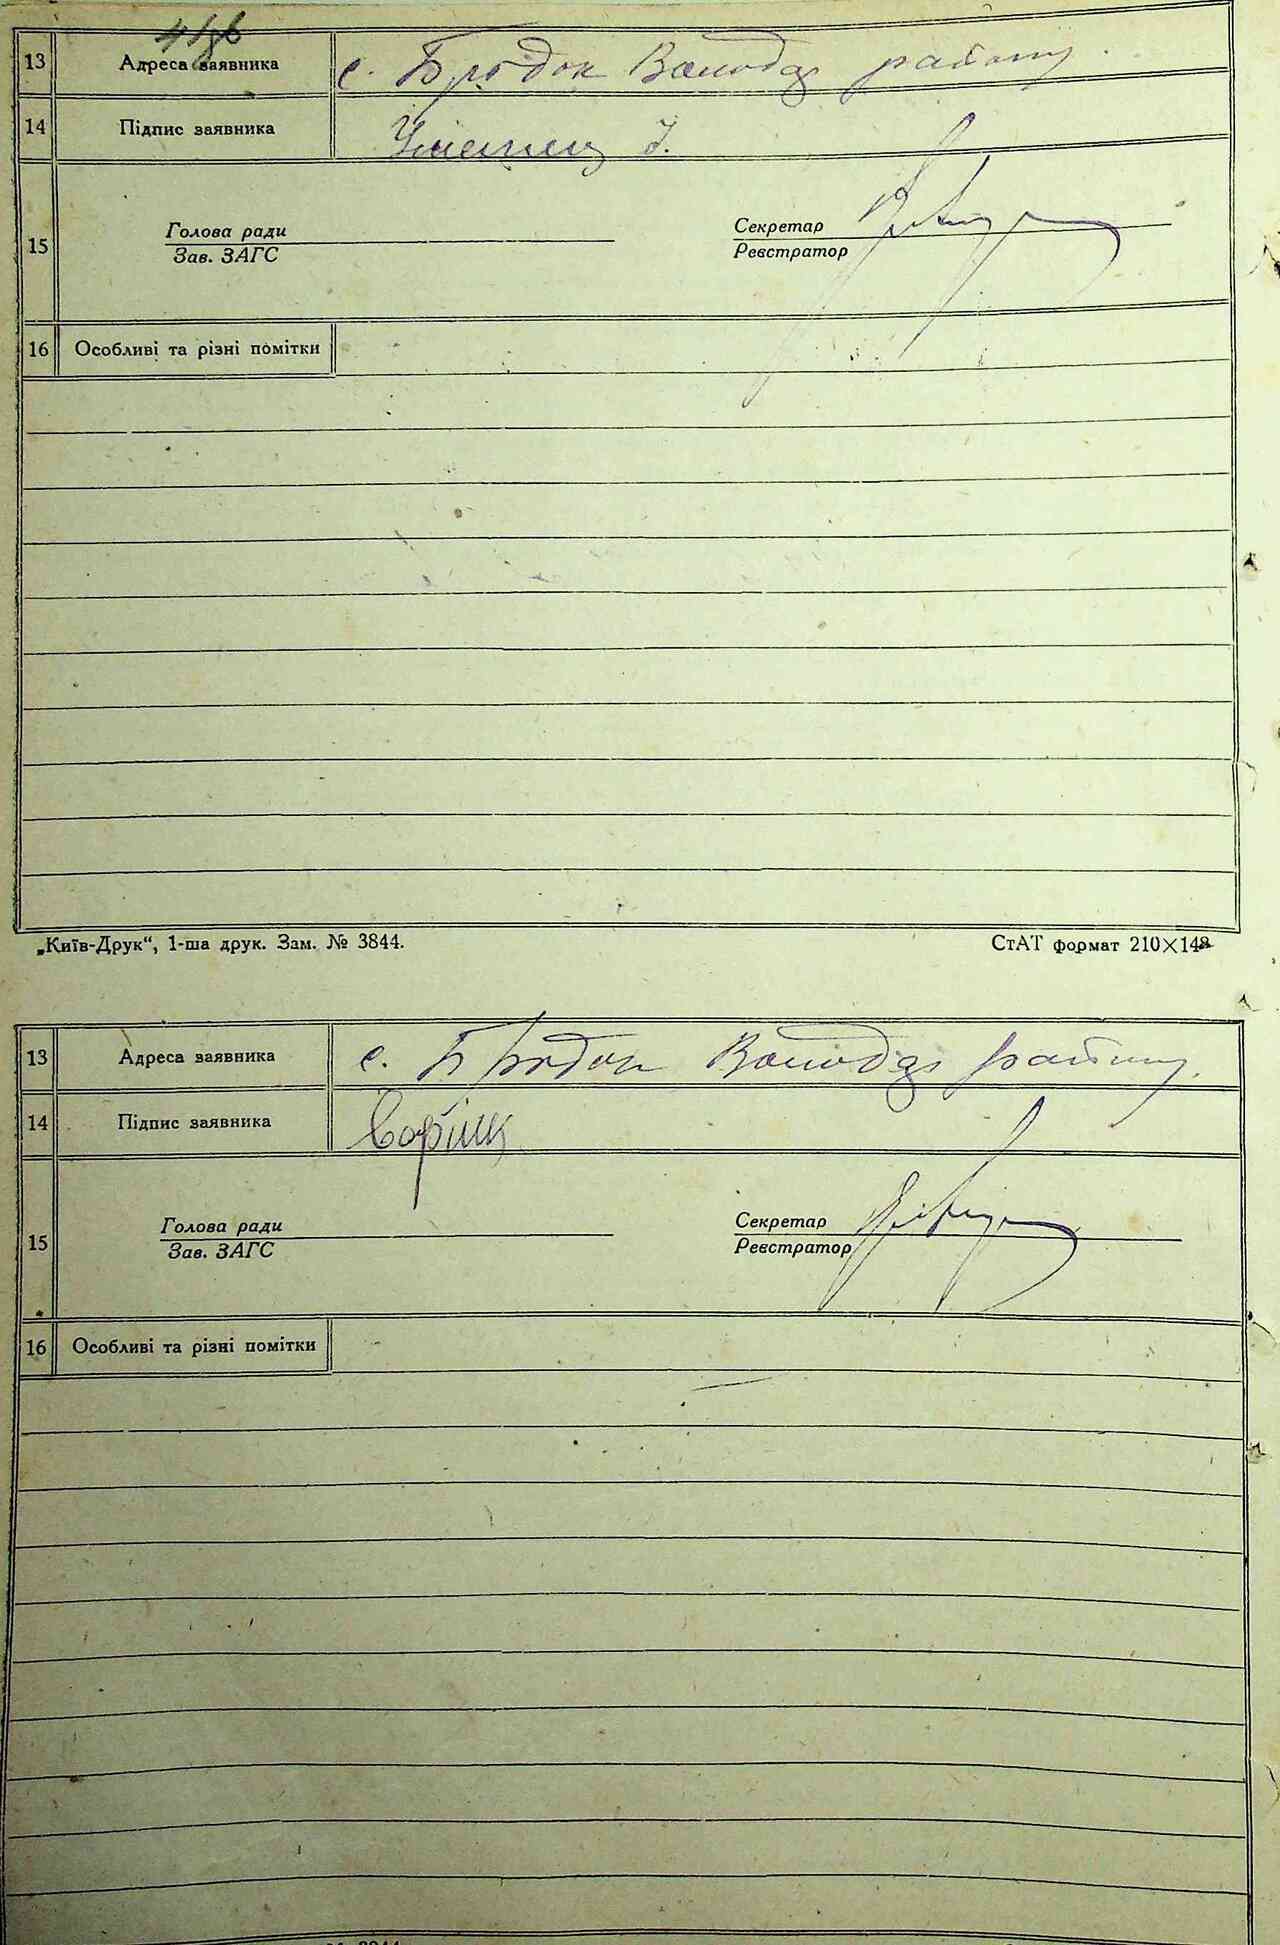 13 Адреса заявника с. Бродок Володар району
14 Підпис заявника
15 Голова ради Секретар
Зав. ЗАГС Реєстратор
16 Особливі та різні помітки
„Київ-Друк“, 1-ша друк. Зам. № 3844. СтАТ формат 210×148
13 Адреса заявника с. Бродок Володар району.
14 Підпис заявника
15 Голова ради Секретар
Зав. ЗАГС Реєстратор
16 Особливі та різні помітки